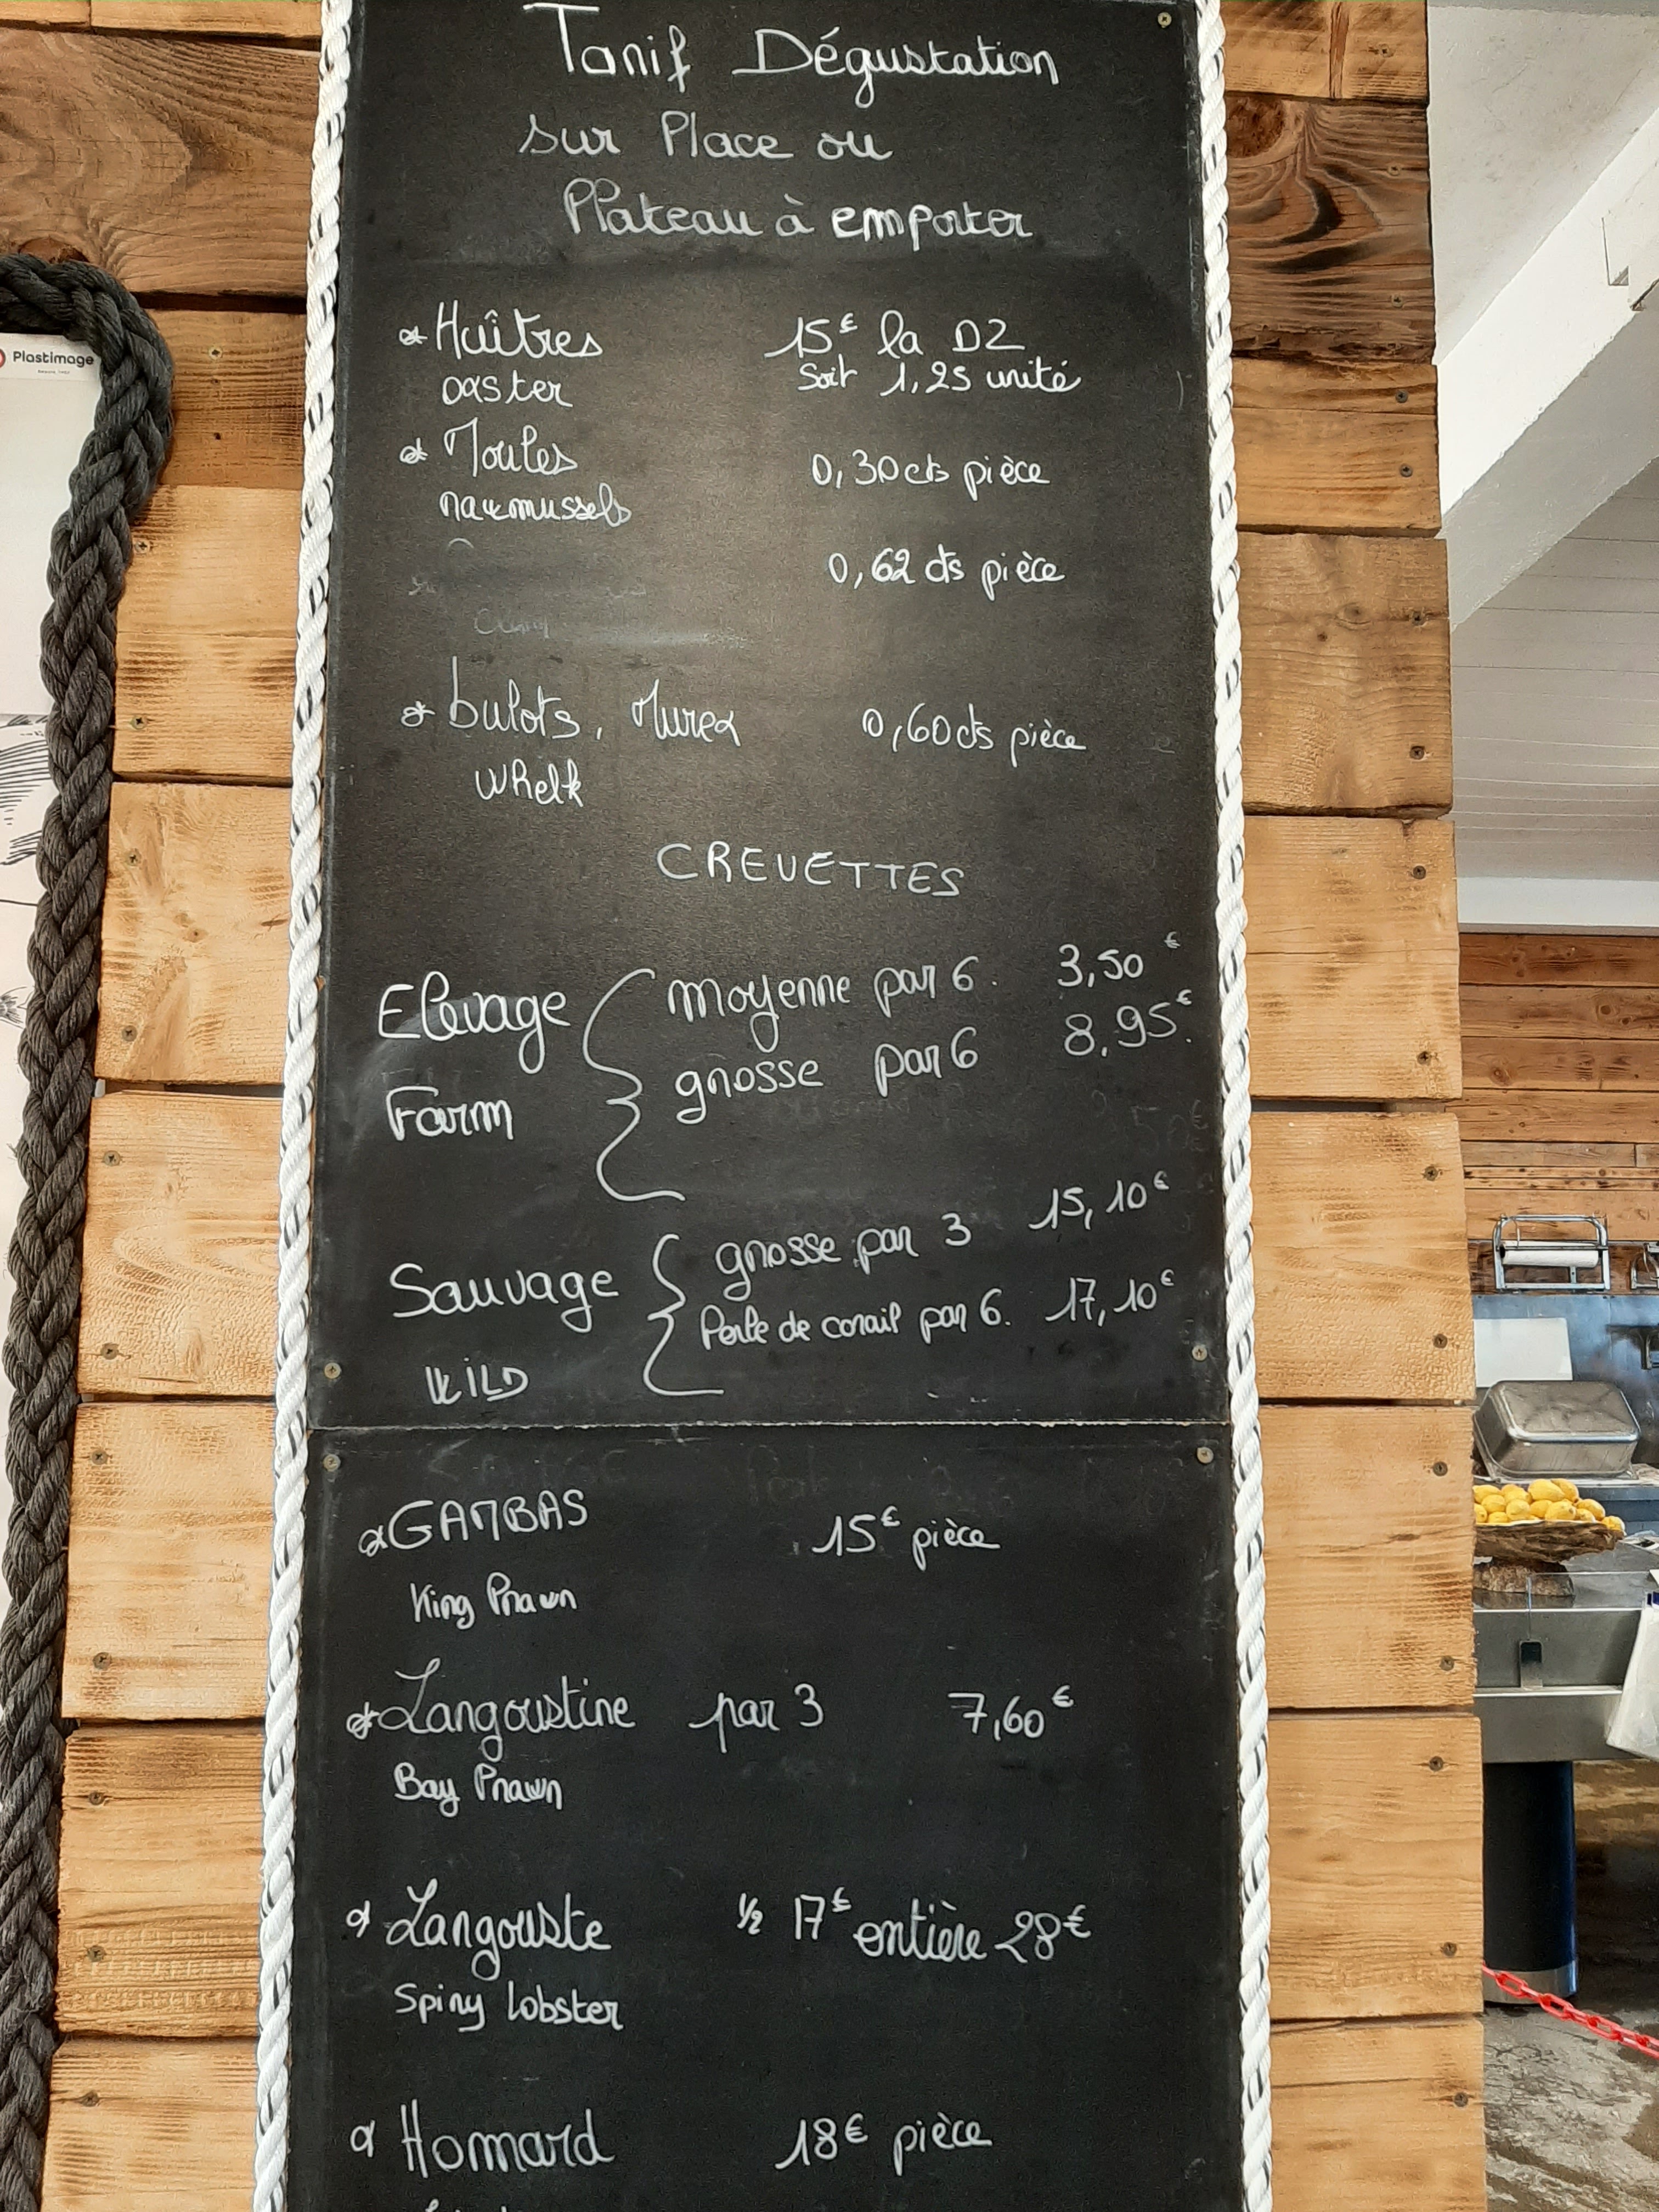 Plastimage
Tarif Dégustation
sur Place ou
Plateau à emporter
Huîtres 15€ la DZ
oaster soit 1,25 unité
Moules 0,30 cts pièce
mussels
0,62 cts pièce
bulots, Murex 0,60 cts pièce
Whelk
CREVETTES
Elevage moyenne par 6. 3,50€
grosse par 6 8,95€
Farm
Sauvage grosse par 3 15,10€
Perle de corail par 6. 17,10€
WILD
GAMBAS 15€ pièce
King Prawn
Langoustine par 3 7,60€
Bay Prawn
Langouste 1/2 17€ entière 28€
Spiny lobster
Hommard 18€ pièce